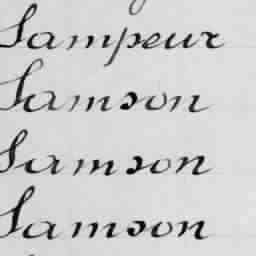 Sampeur
Samson
Samson
Samson